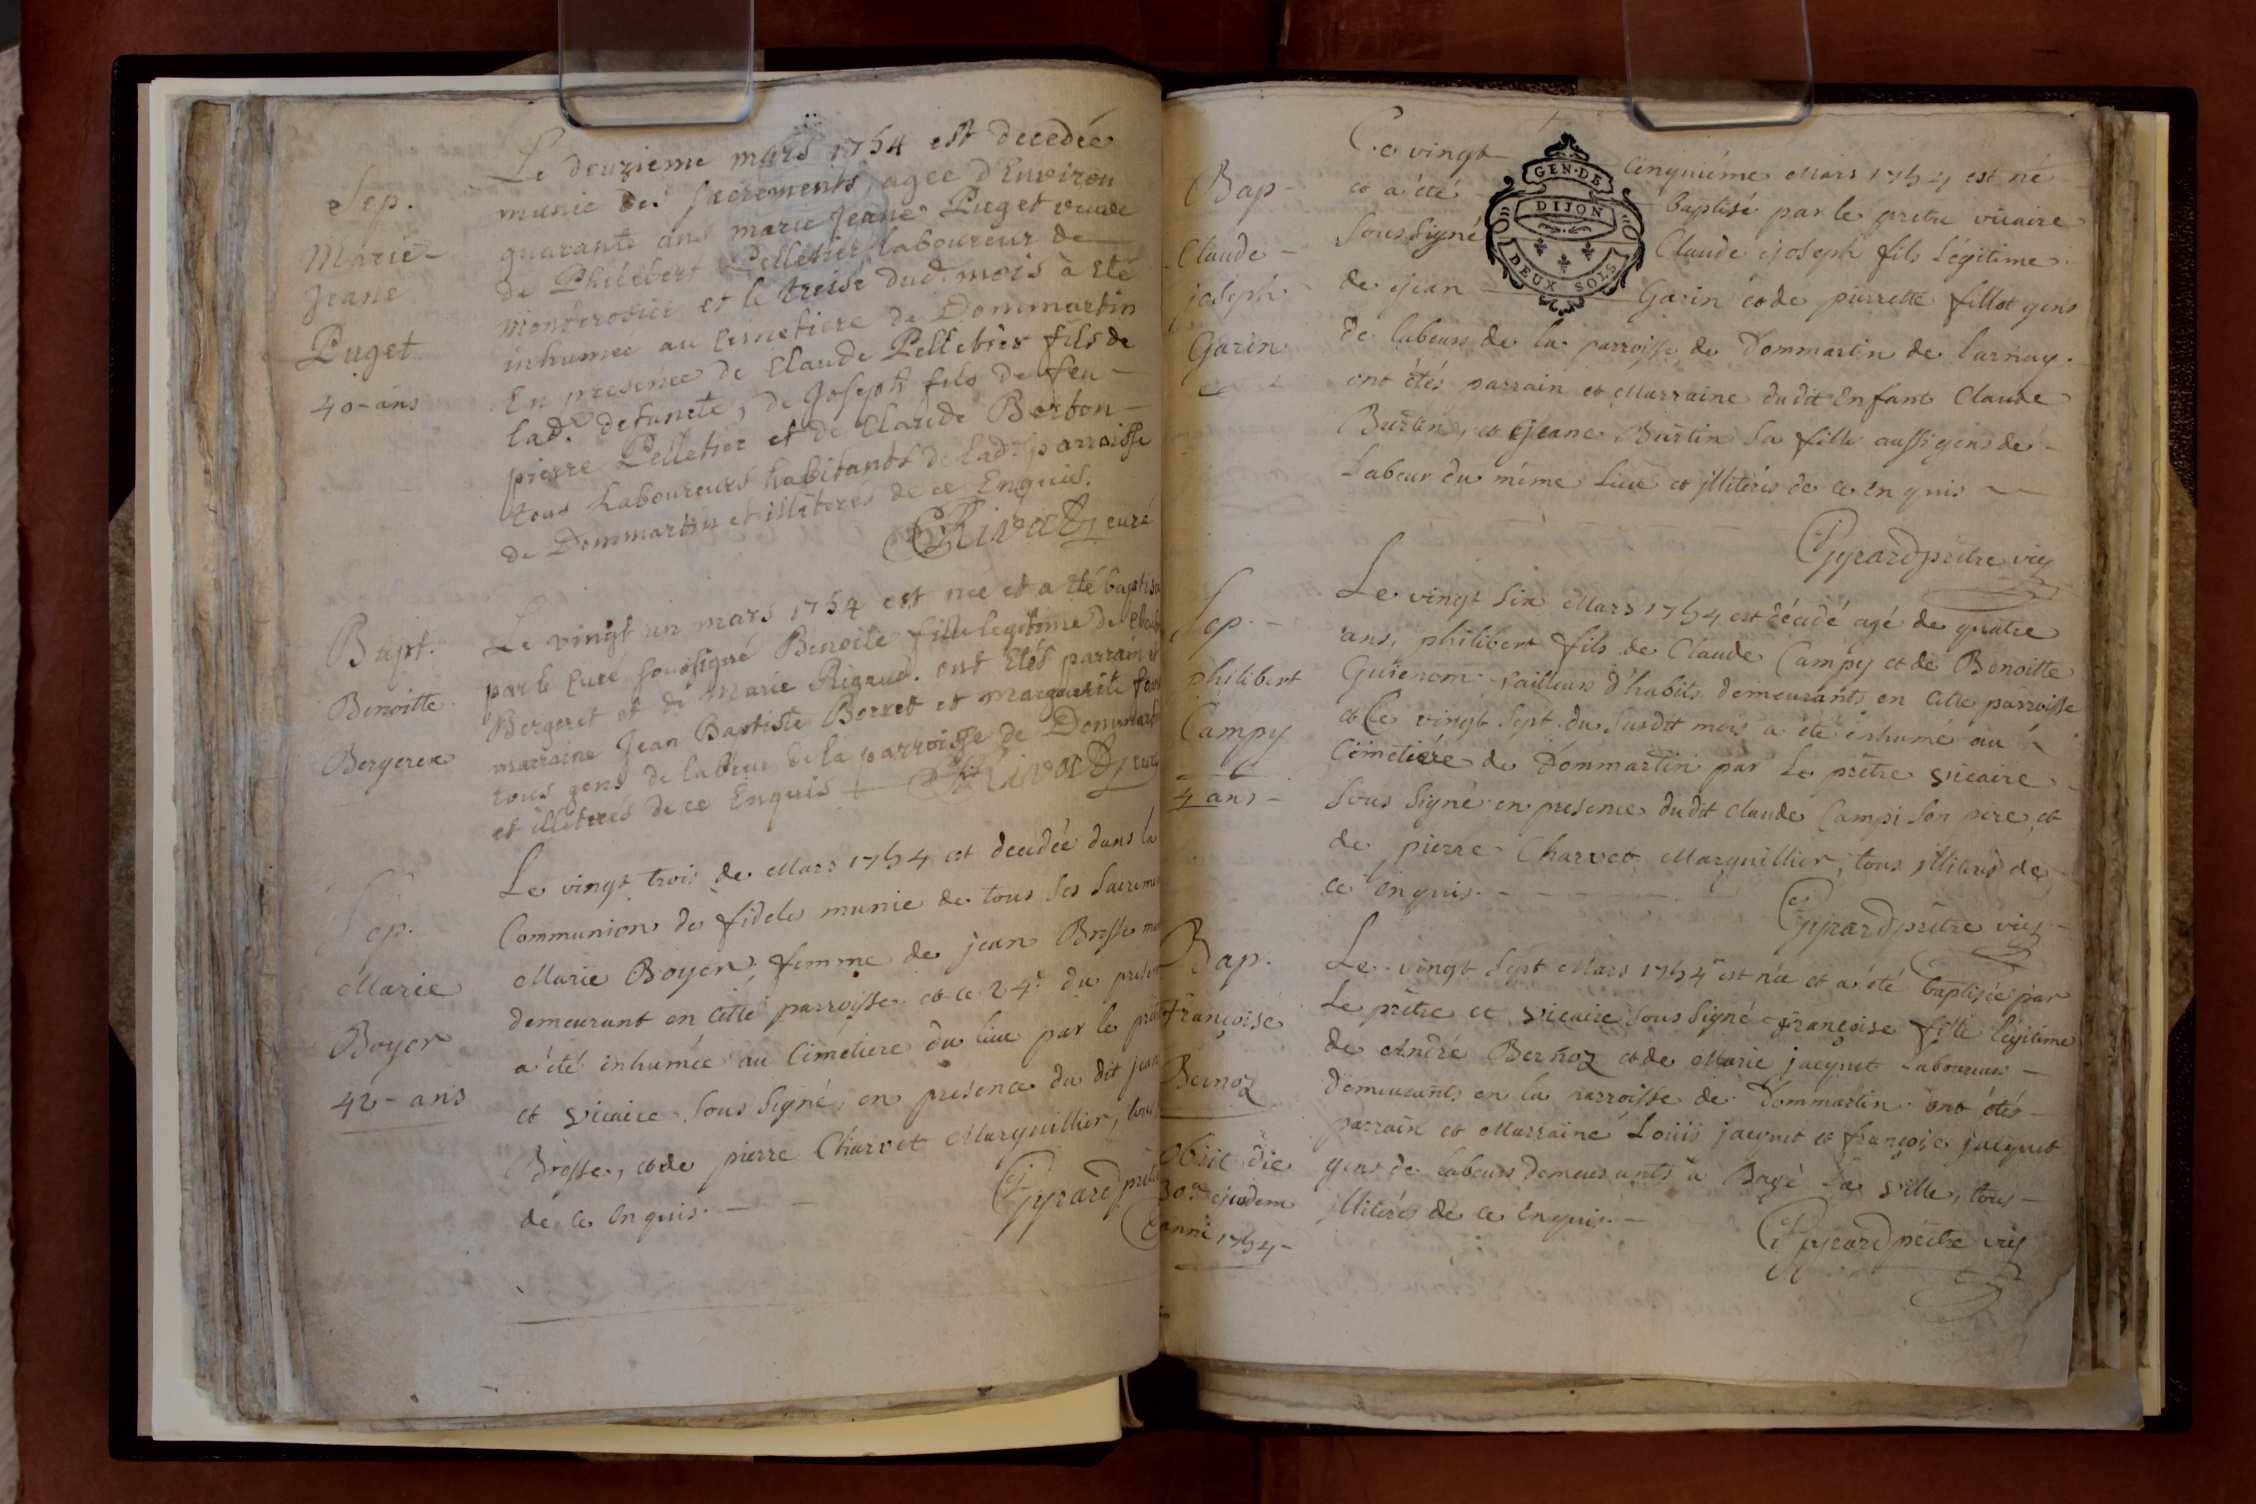 Sep.
Marie
Jeane
Puget
40 ans
Le douzieme mars 1754 est decedée
munie des sacrements, agee d'Environ
quarante ans marie Jeane Puget veuve
de Philibert Pelletier laboureur de
et le treise dud. mois à eté
inhumee au cimetiere de Dommartin
En presence de Claude Pelletier fils de
lad.e defuncte, de Joseph fils de feu
pierre Pelletier et de Claude Berbon
tous laboureurs habitants de lad.e parroisse
de Dommartin et illiterés de ce Enquis.
Rivat curé
Bapt.
Benoitte
Bergeret
Le vingt un mars 1754 est nee et a eté baptisé
par le curé soussigné Benoite fille legitime de
Bergeret et de Marie Rigaud. ont etés parrain et
marraine Jean Baptiste Borret et marguerite
tous gens de labeur de la parroisse de Dommart
et illiterés de ce Enquis Rivat curé
Sep.
Marie
Boyer
42 ans
Le vingt trois de Mars 1754 est decedée dans la
Communion de fideles munie de tous ses Sacreme
Marie Boyer, femme de jean Brosse
demeurant en cette parroisse et ce 24e du presen
a été inhumée au Cimetiere du lieu par le prêt
et vicaire sous signé, en presence du dit jean
Brosse, et de pierre Charvet Marguillier, tous
de ce enquis.
Gyrard prêt
Bap
Claude
joseph
Garin
Ce vingt cinquiéme Mars 1754 est né
et a été baptisé par le pretre vicaire
sous signé Claude joseph fils légitime
de jean Garin et de pierrette fillot gens
de labeurs de la parroisse de Dommartin de Larnay.
ont étés parrain et Marraine du dit Enfant Claude
Burtin, et jeane Burtin sa fille aussi gens de
Labeur du même Lieu et illiterés de ce enquis
Gyrard prêtre vic
GEN. DE
DIJON
DEUX SOLS
Sep.
philibert
Campy
4 ans
Le vingt six Mars 1754 est décédé agé de quatre
ans, philibert fils de Claude Campy et de Benoitte
tailleur d'habits demeurants en cette parroisse
et Ce vingt sept du susdit mois a été inhumé au
Cimetiére de Dommartin par Le prêtre vicaire
sous signé en presence du dit Claude Campi son pere, et
de pierre Charvet Marguillier, tous illiterés de
ce enquis.
Gyrard prêtre vic
Bap.
françoise
Bernoz
obiit die
30a ejusdem
anni 1754
Le vingt Sept Mars 1754 est née et a été baptisée par
Le prêtre et vicaire sous signé françoise fille légitime
de André Bernoz et de Marie jacquet Laboureurs
demeurants en la parroisse de Dommartin ont étés
parrain et Marraine Louis jacquet et françoise jacquet
gens de labeurs demeurants a Bagé La Ville, tous
illiterés de ce enquis.
Gyrard prêtre vic